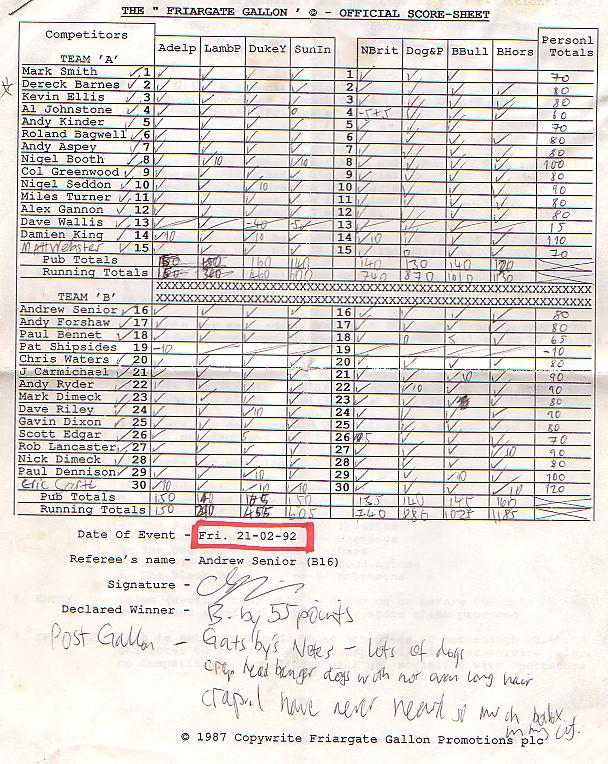 THE " FRIARGATE GALLON ' © - OFFICIAL SCORE-SHEET
Competitors Adelp LambP DukeY SunIn NBrit Dog&P BBull BHors Personl Totals
TEAM 'A'
Mark Smith ✓ 1 1 70
Dereck Barnes ✓ 2 2 80
Kevin Ellis ✓ 3 3 80
Al Johnstone ✓ 4 0 4 -5+5 60
Andy Kinder ✓ 5 5 70
Roland Bagwell ✓ 6 6 80
Andy Aspey ✓ 7 7 80
Nigel Booth ✓ 8 10 10 8 100
Col Greenwood ✓ 9 9 80
Nigel Seddon ✓ 10 10 10 90
Miles Turner ✓ 11 11 80
Alex Gannon ✓ 12 12 80
Dave Wallis ✓ 13 13 15
Damien King ✓ 14 10 10 14 10 110
Matt Webster 15 15 70
Pub Totals 150 150 160 140 140 130 140 120
Running Totals 460 600 740 870 1010 1130
XXXXXXXXXXXXXXXXXXXXXXXXXXXXXXXXXXXXXXXXXXXXXXXXXX
TEAM 'B' XXXXXXXXXXXXXXXXXXXXXXXXXXXXXXXXXXXXXXXXXXXXXXXXXX
Andrew Senior ✓ 16 16 80
Andy Forshaw ✓ 17 17 80
Paul Bennet ✓ 18 18 0 5 65
Pat Shipsides 19 -10 19 -10
Chris Waters ✓ 20 20 80
J Carmichael ✓ 21 21 10 90
Andy Ryder ✓ 22 22 10 90
Mark Dimeck ✓ 23 23 80
Dave Riley ✓ 24 10 24 90
Gavin Dixon ✓ 25 25 80
Scott Edgar ✓ 26 5 26 5 70
Rob Lancaster ✓ 27 27 10 90
Nick Dimeck ✓ 28 28 80
Paul Dennison ✓ 29 10 29 10 100
Eric 30 10 10 10 30 10 120
Pub Totals 150 150 135 140 145 160
Running Totals 150 455 605 740 880 1025 1185
Date Of Event - Fri. 21-02-92
Referee's name - Andrew Senior (B16)
Signature -
Declared Winner - B. by 55 points
Post Gallon - Gatsby's Notes - lots of dogs
crap head banger dogs with not even long hair
crap. I have never heard so much
in my
© 1987 Copywrite Friargate Gallon Promotions plc